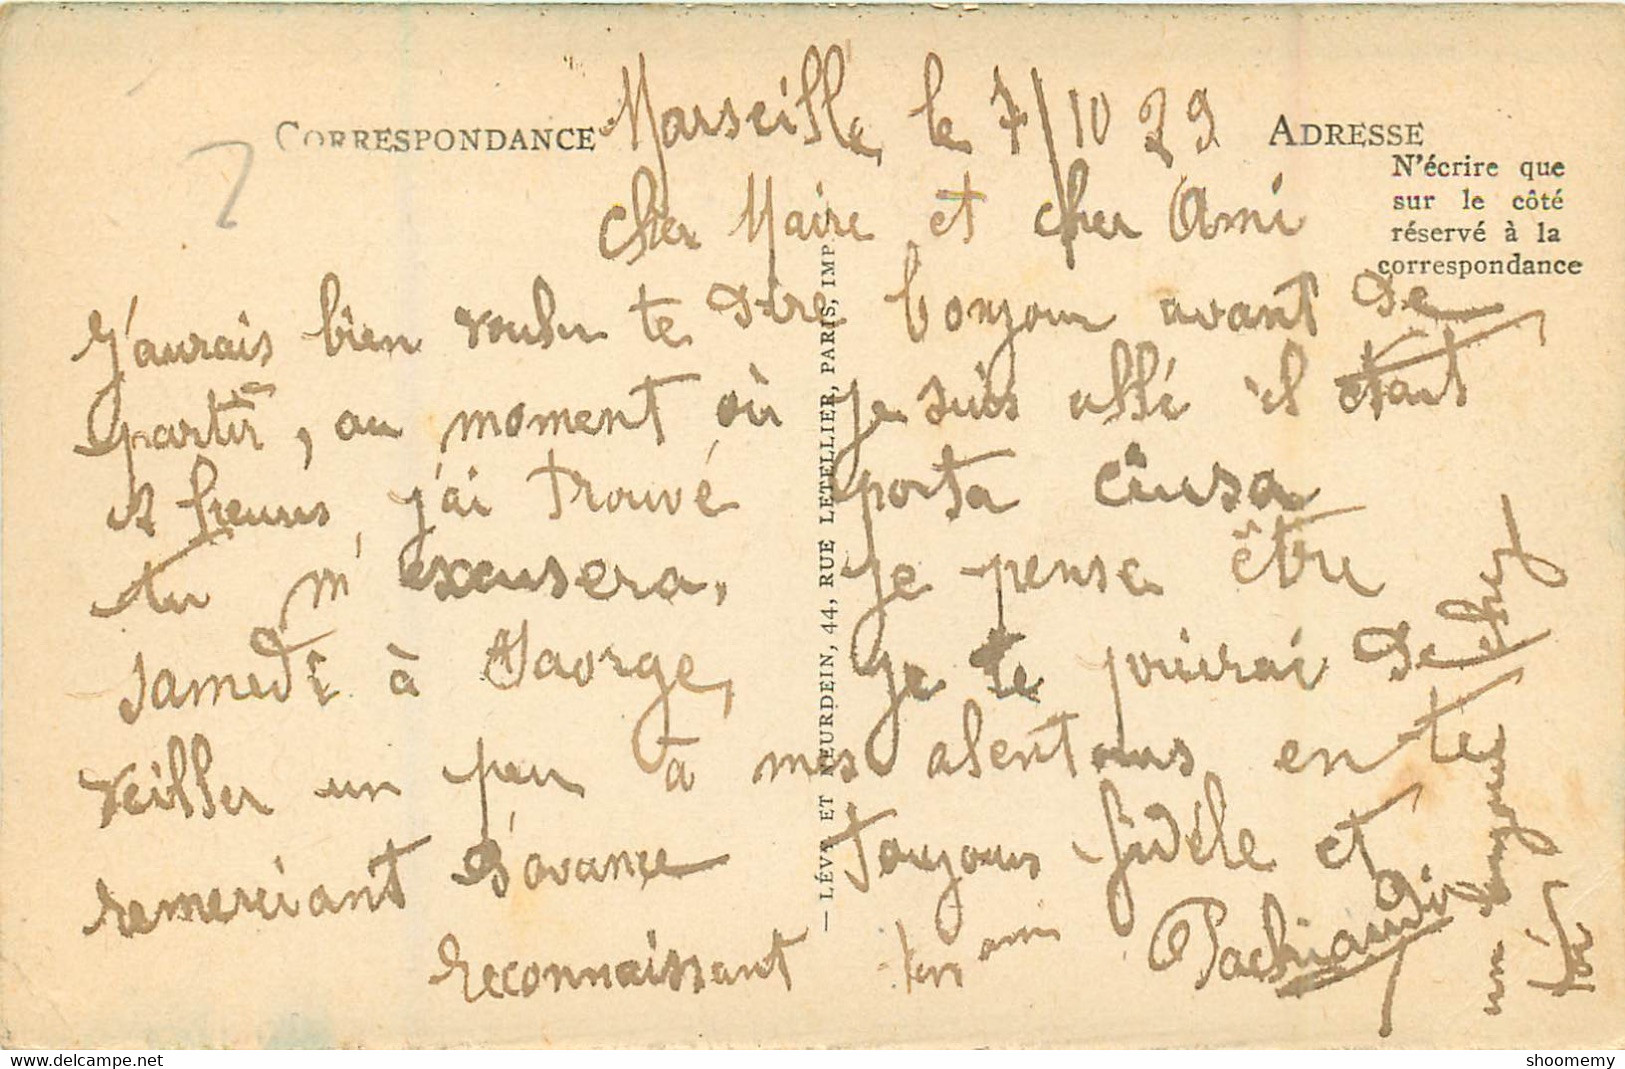 CORRESPONDANCE
Marseille, le 7/10 29
ADRESSE
N'écrire que
sur le côté
réservé à la
correspondance
Cher Maire et cher Ami
J'aurais bien voulu te dire bonjour avant de
partir, au moment où je suis allé il était
heures, j'ai trouvé porta ciusa
tu m'excusera, Je pense être
samedi à Saorge, je te prierai de
veiller un peu à mes alentours en te
remerciant d'avance Toujours fidèle et
reconnaissant ton ami Pachiaudi
— LÉVY ET NEURDEIN, 44, RUE LETELLIER, PARIS, IMP.
delcampe.net
shoomemy